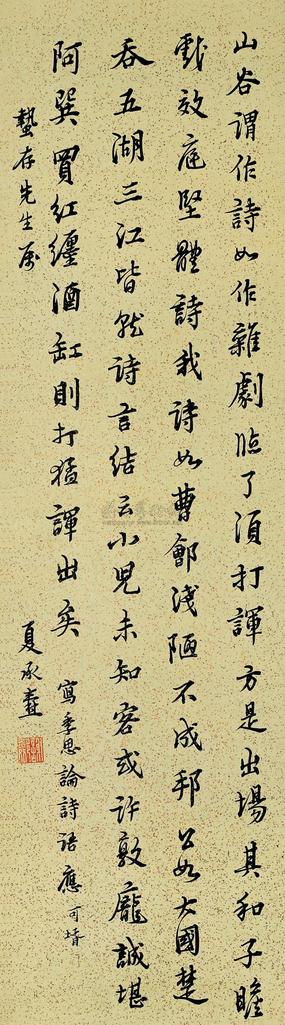 山谷謂作詩如作雜劇臨了須打諢方是出場其和子瞻
戲效庭堅體詩我詩如曹鄶淺陋不成邦公如大國楚
吞五湖三江皆就詩言結云小兒未知客或許敦龐誠堪
阿巽買紅纏酒缸則打猛諢出矣
寫季思論詩語應
蟄存先生屬
夏承燾